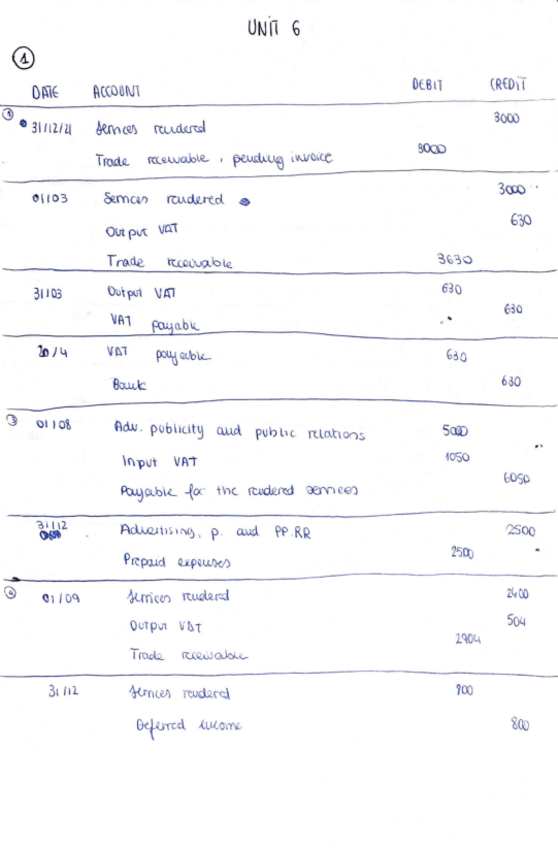 UNIT 6
1
DATE ACCOUNT DEBIT CREDIT
1 31/12/21 Services rendered 3000
Trade receivable, pending invoice 3000
01/03 Services rendered 3000
Output VAT 630
Trade receivable 3630
31/03 Output VAT 630
VAT payable 630
20/4 VAT payable 630
Bank 630
3 01/08 Adv. publicity and public relations 5000
Input VAT 1050
Payable for the rendered services 6050
31/12 Advertising, p. and PP.RR 2500
Prepaid expenses 2500
4 01/09 Services rendered 2400
Output VAT 504
Trade receivable 2904
31/12 Services rendered 800
Deferred income 800